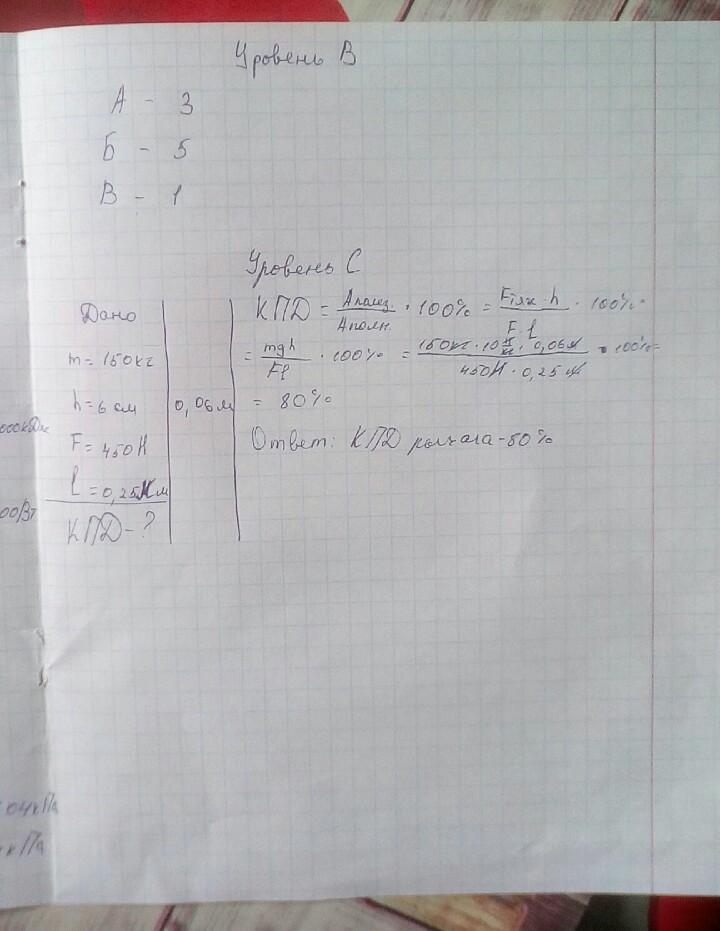 Уровень В
А - 3
Б - 5
В - 1
Уровень С
Дано
m = 150кг
h = 6 см 0,06м
F = 450Н
l = 0,25 м
КПД - ?
КПД = Aполез. / Aполн. · 100% = Fтяж · h / F · l · 100% =
= mgh / Fl · 100% = 150кг · 10 Н/кг · 0,06м / 450Н · 0,25м · 100% =
= 80%
Ответ: КПД рычага - 80%
000кДж
00Вт
04кПа
кПа